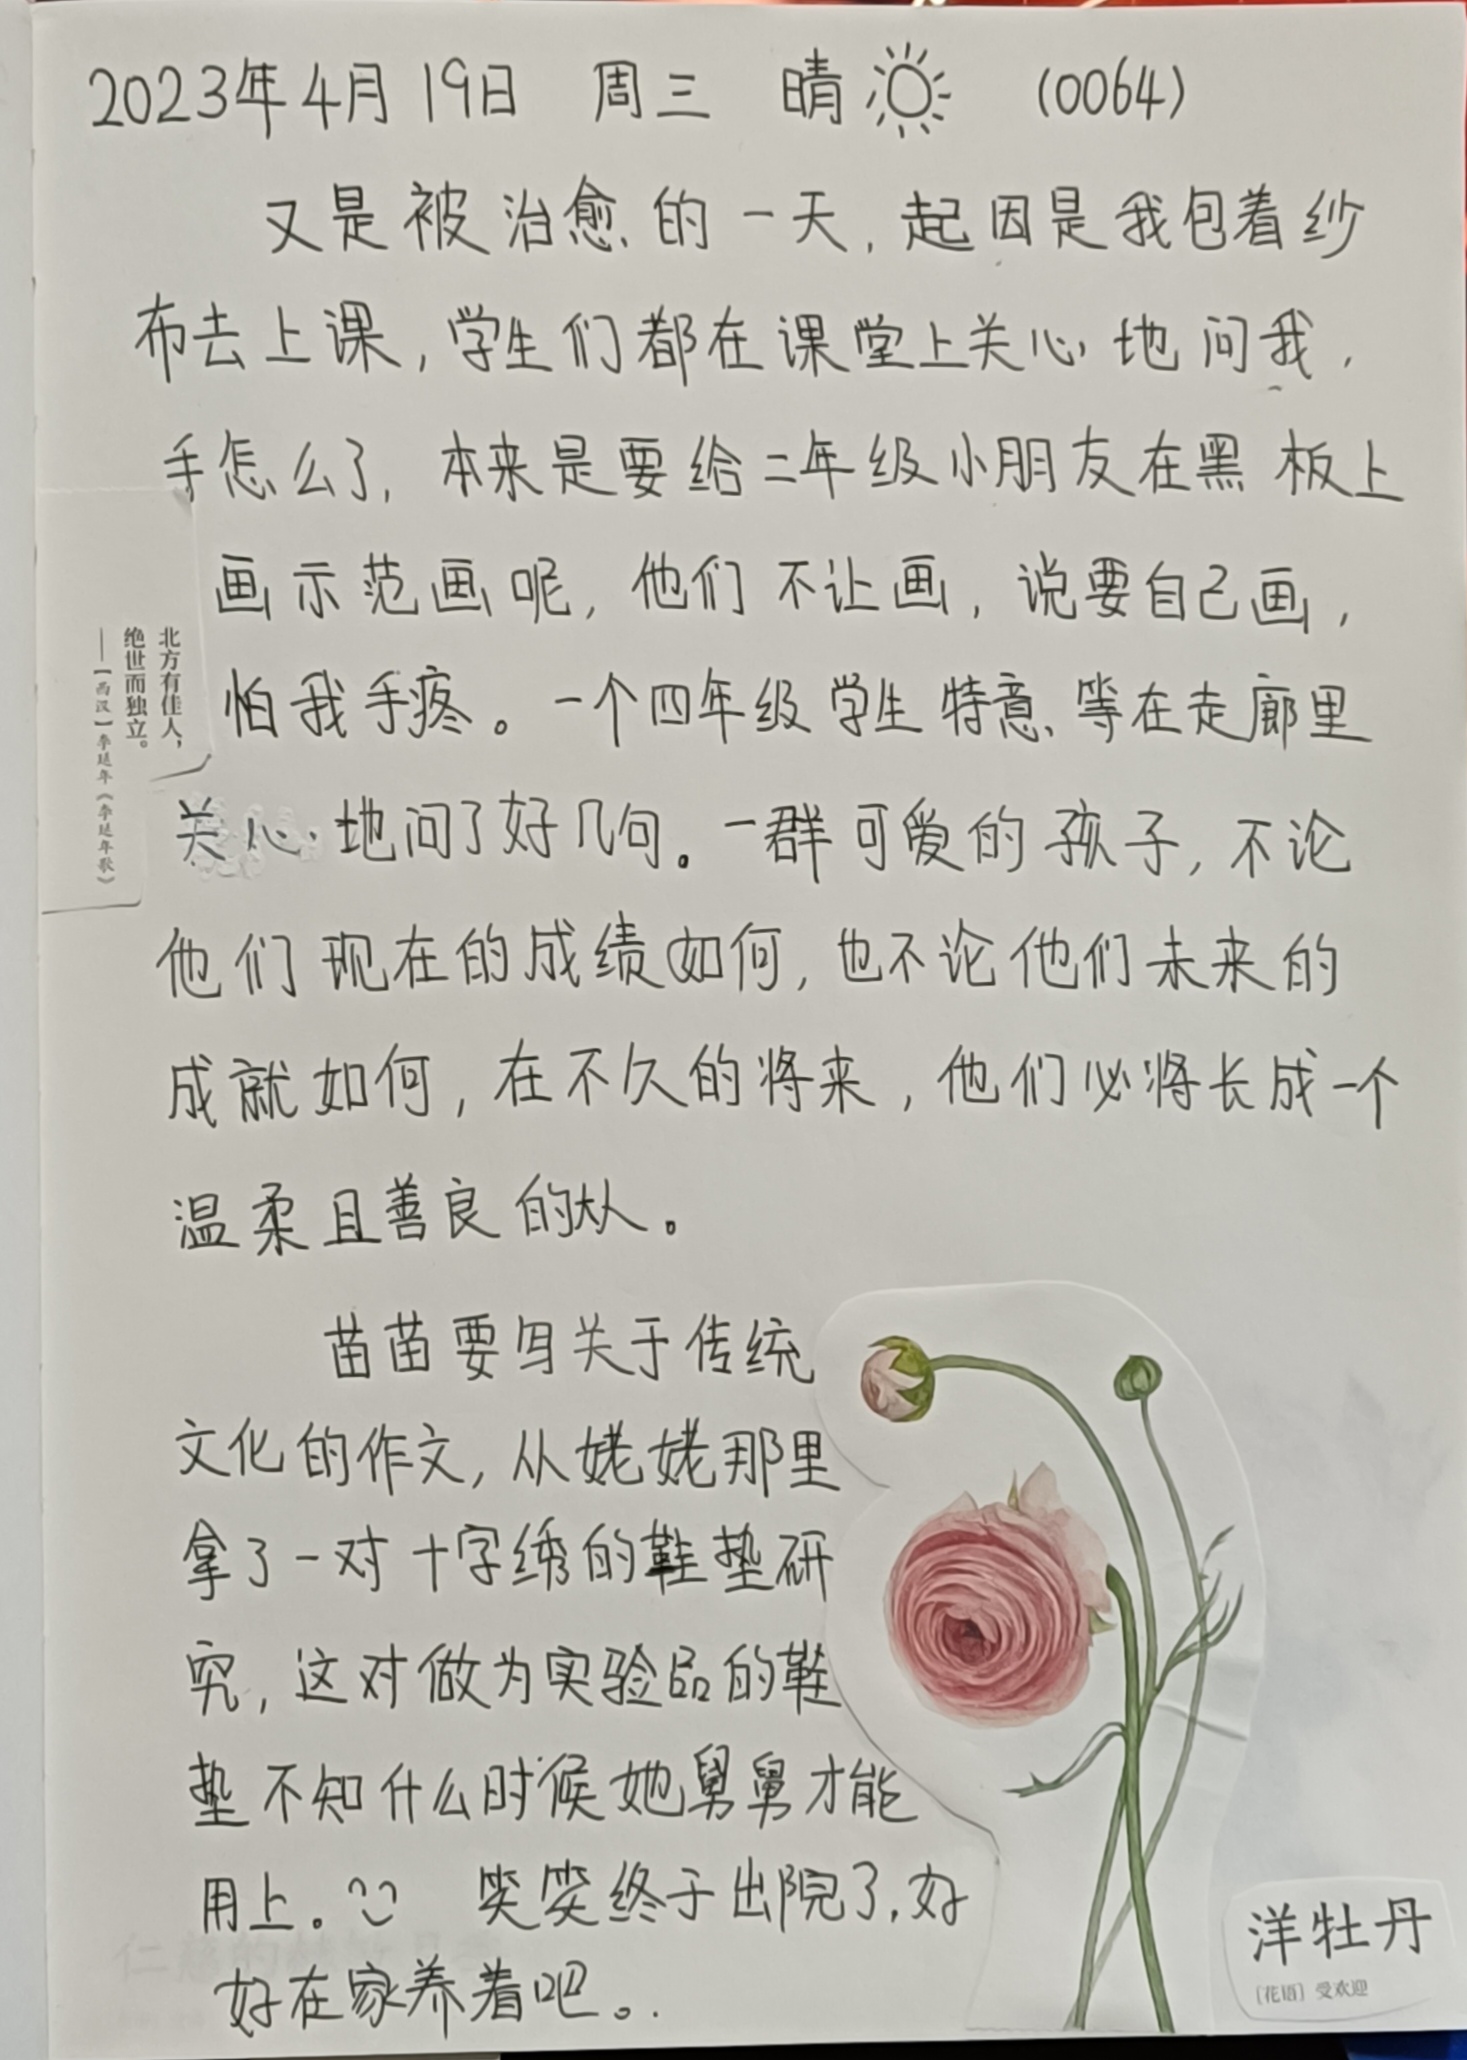 2023年4月19日 周三 晴 (0064)
又是被治愈的一天，起因是我包着纱
布去上课，学生们都在课堂上关心地问我，
手怎么了，本来是要给二年级小朋友在黑板上
画示范画呢，他们不让画，说要自己画，
怕我手疼。一个四年级学生特意等在走廊里
关心地问了好几句。一群可爱的孩子，不论
他们现在的成绩如何，也不论他们未来的
成就如何，在不久的将来，他们必将长成一个
温柔且善良的大人。
苗苗要写关于传统
文化的作文，从姥姥那里
拿了一对十字绣的鞋垫研
究，这对做为实验品的鞋
垫不知什么时候她舅舅才能
用上。 笑笑终于出院了，好
好在家养着吧。
北方有佳人，
绝世而独立。
——【西汉】李延年《李延年歌》
洋牡丹
［花语］受欢迎